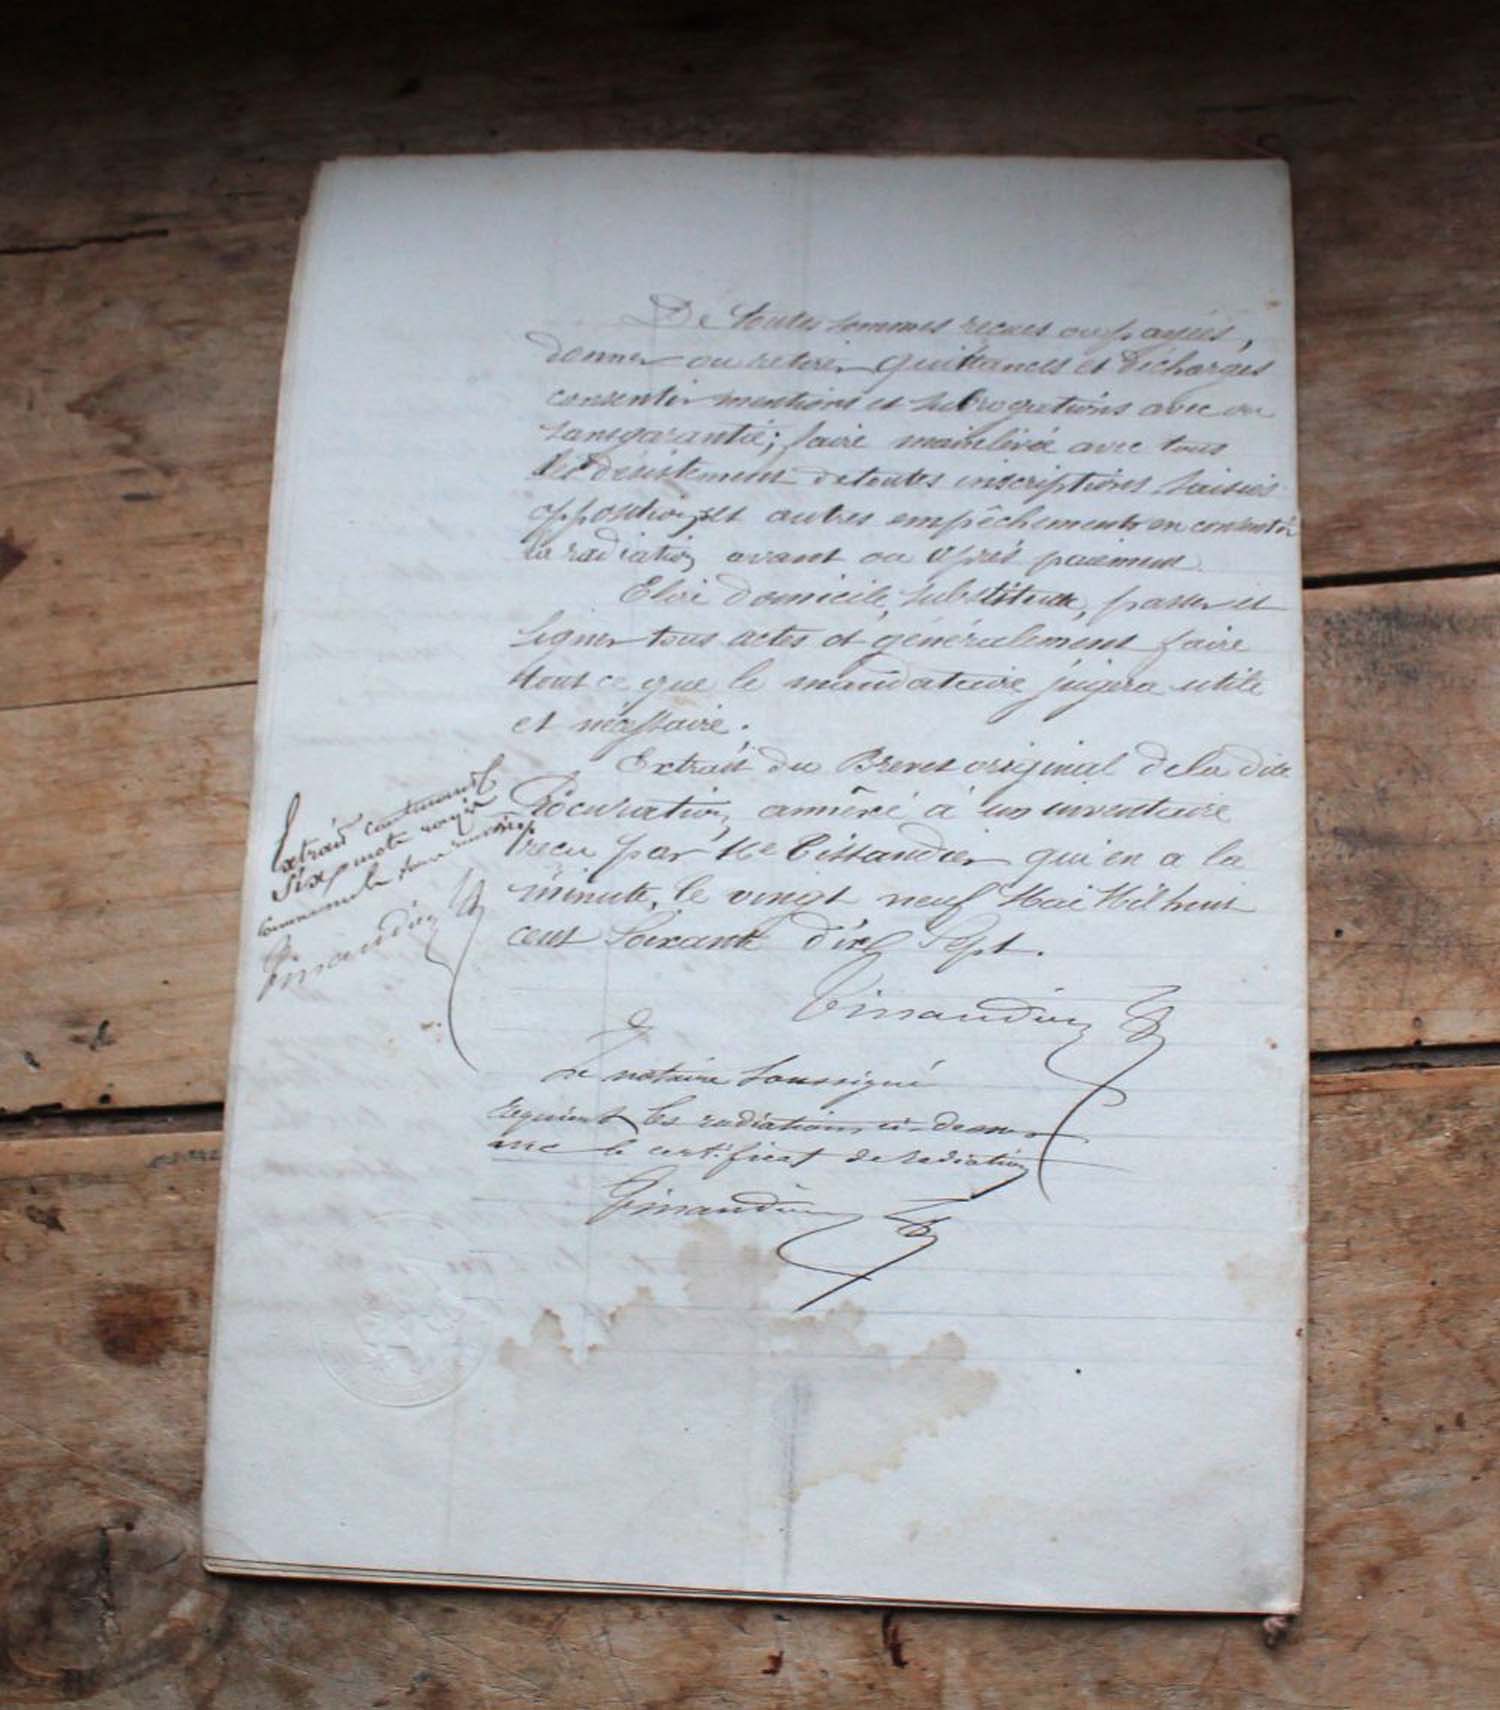 De toutes sommes reçues ou payées,
donner ou retirer quittances et décharges
consentir mentions et subrogations avec ou
sans garantie; faire mainlevée avec tous
les désistement de toutes inscriptions saisies
oppositions et autres empêchements en consentir
la radiation avant ou après paiement.
Elire domicile, substituer, passer et
signer tous actes et généralement faire
tout ce que le mandataire jugera utile
et nécessaire.
Extrait du Brevet original de la dite
Procuration, annéxé à un inventaire
reçu par Me Tissandier qui en a la
minute, le vingt neuf Mai Mil huit
cent soixante dix sept.
Extrait contenant
Six mots rayés
comme
Tissandier
Tissandier
Le notaire soussigné
requiert les radiations ci-dessus
avec le certificat de radiation
Tissandier